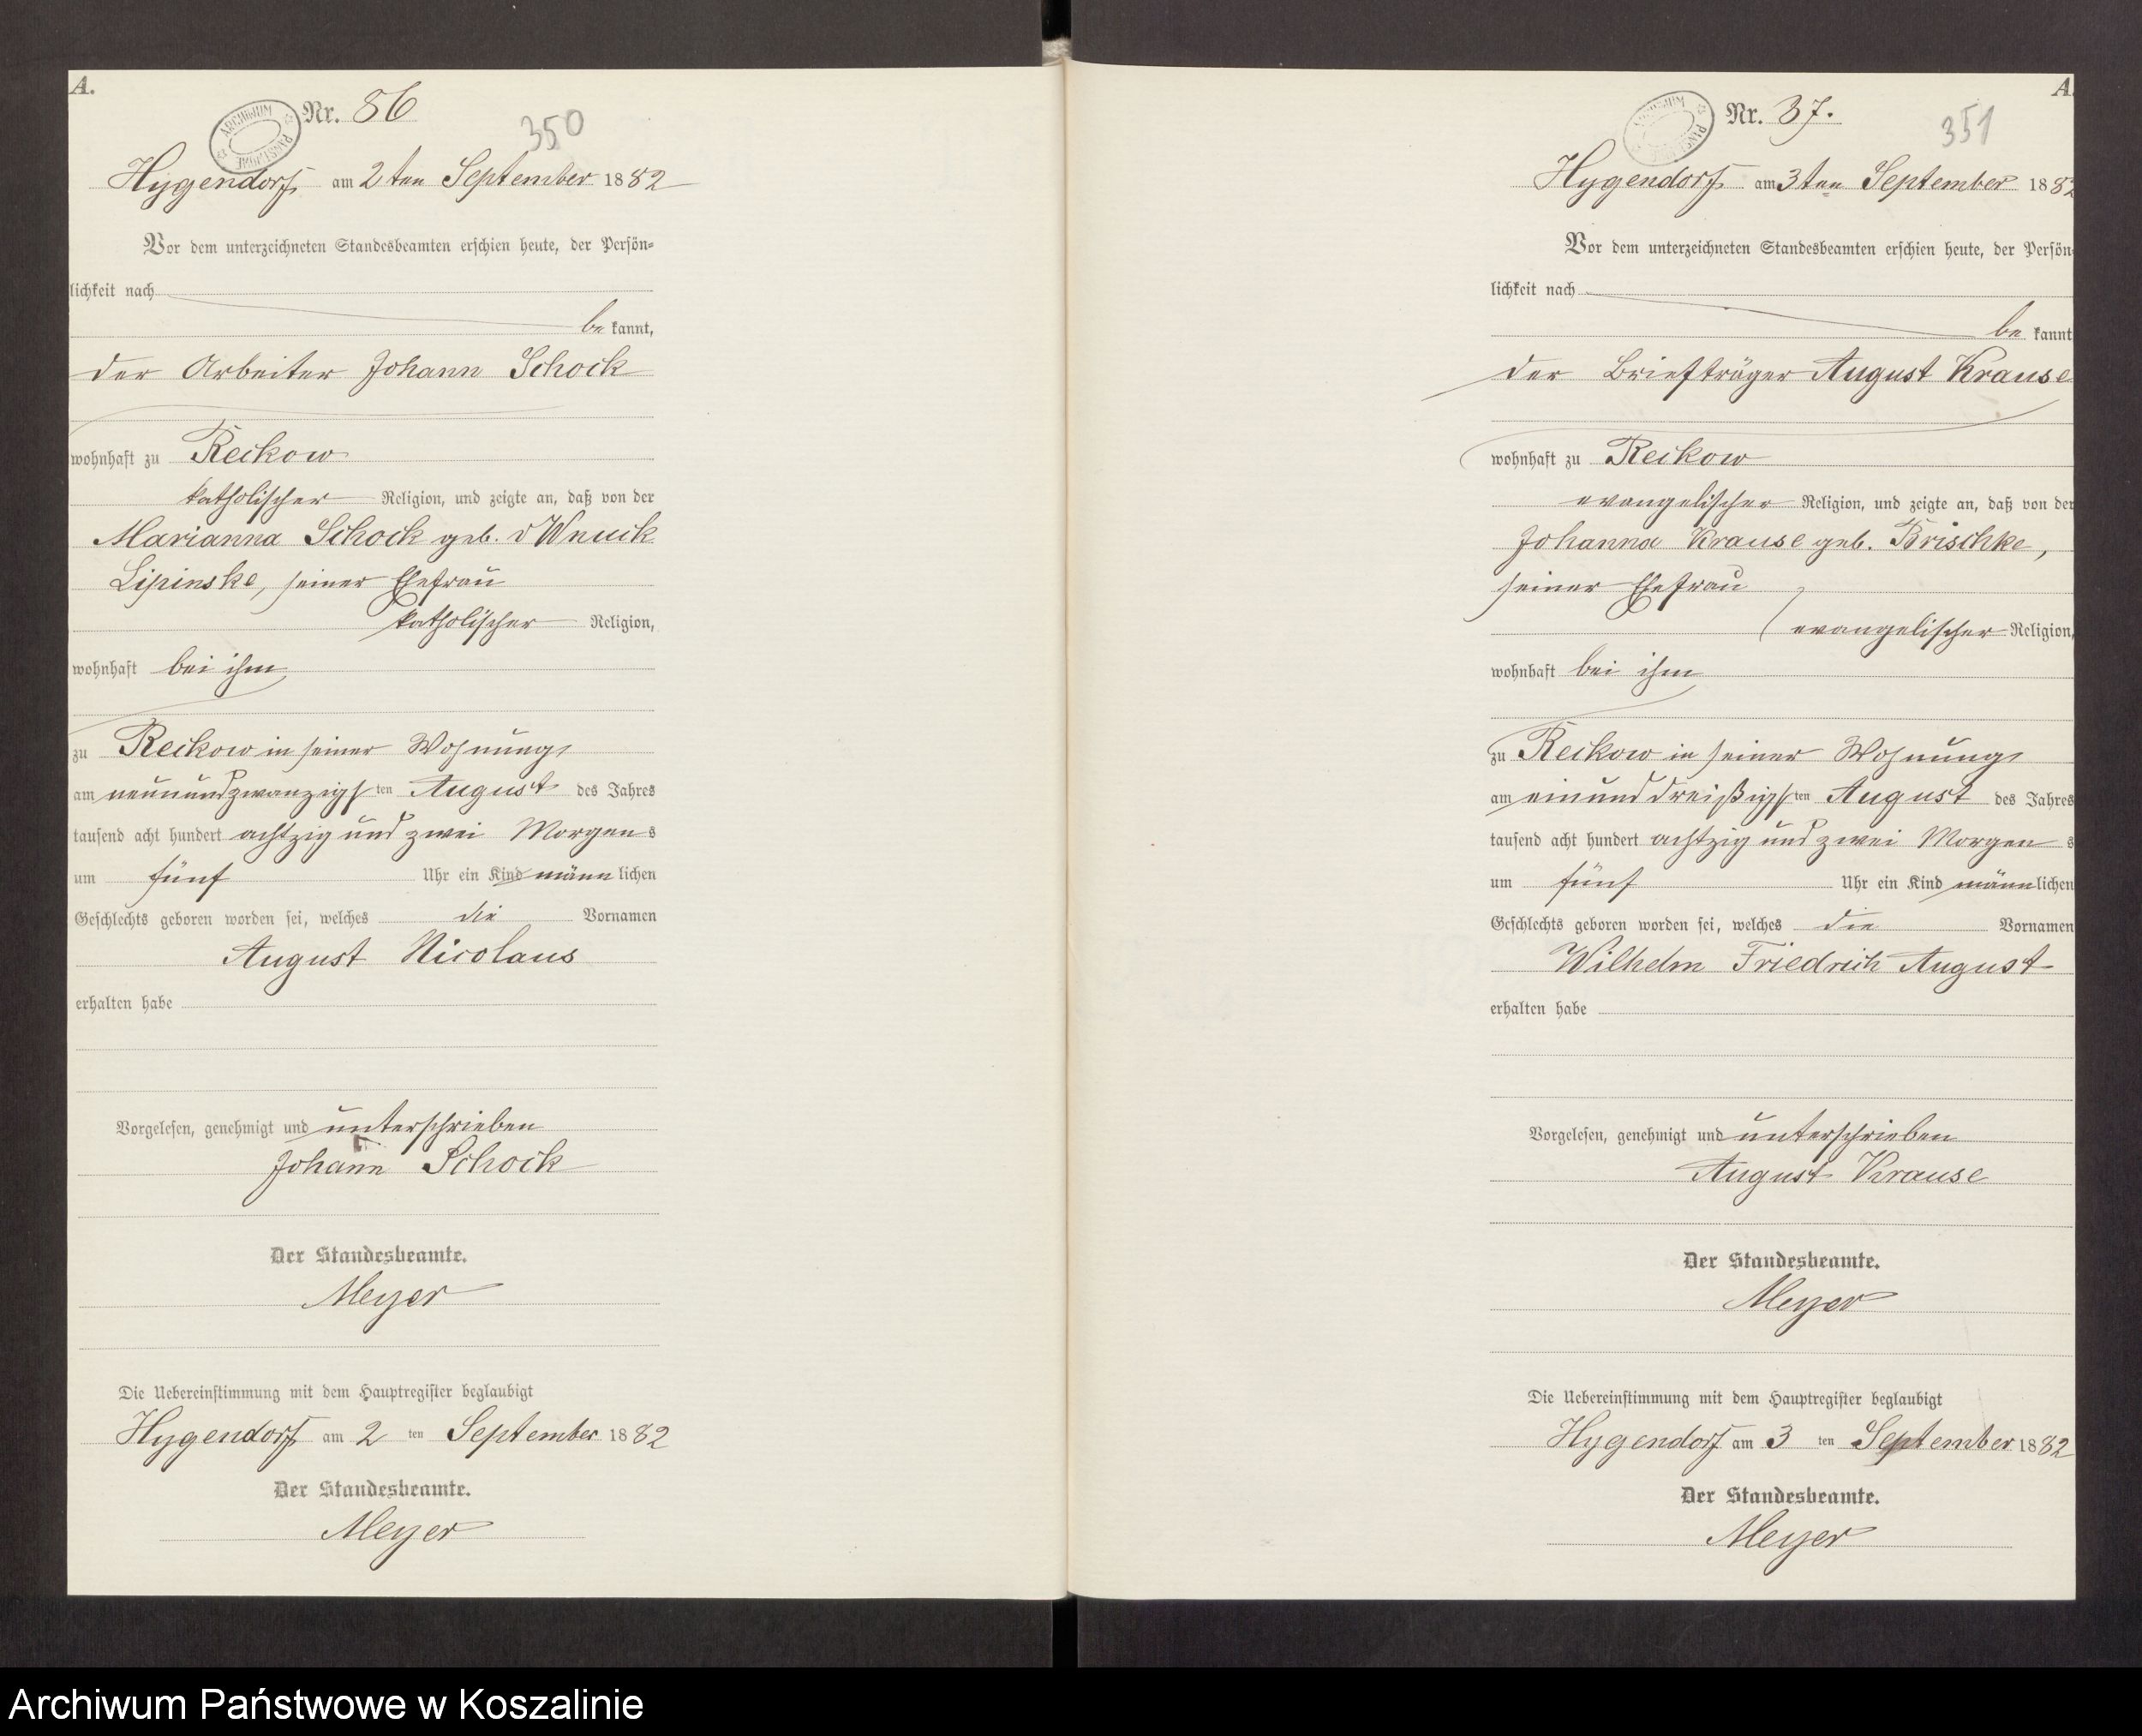 A.
Nr. 86
350
ARCHIWUM PAŃSTWOWE
Hygendorf am 2ten September 1882
Vor dem unterzeichneten Standesbeamten erschien heute, der Persön-
lichkeit nach
be kannt,
der Arbeiter Johann Schock
wohnhaft zu Reckow
katholischer Religion, und zeigte an, daß von der
Marianna Schock geb. v Wnuck
Lipinske, seiner Ehefrau
katholischer Religion,
wohnhaft bei ihm
zu Reckow in seiner Wohnung,
am neunundzwanzigsten August des Jahres
tausend acht hundert achtzig und zwei Morgens
um fünf Uhr ein Kind männlichen
Geschlechts geboren worden sei, welches die Vornamen
August Nicolaus
erhalten habe
Vorgelesen, genehmigt und unterschrieben
Johann Schock
Der Standesbeamte.
Meyer
Die Uebereinstimmung mit dem Hauptregister beglaubigt
Hygendorf am 2 ten September 1882
Der Standesbeamte.
Meyer
A.
Nr. 87.
351
Hygendorf am 3ten September 1882
Vor dem unterzeichneten Standesbeamten erschien heute, der Persön-
lichkeit nach
be kannt
der Briefträger August Krause
wohnhaft zu Reckow
evangelischer Religion, und zeigte an, daß von der
Johanna Krause geb. Brischke,
seiner Ehefrau
evangelischer Religion,
wohnhaft bei ihm
zu Reckow in seiner Wohnung
am einunddreißigsten August des Jahres
tausend acht hundert achtzig und zwei Morgens
um fünf Uhr ein Kind männlichen
Geschlechts geboren worden sei, welches die Vornamen
Wilhelm Friedrich August
erhalten habe
Vorgelesen, genehmigt und unterschrieben
August Krause
Der Standesbeamte.
Meyer
Die Uebereinstimmung mit dem Hauptregister beglaubigt
Hygendorf am 3 ten September 1882
Der Standesbeamte.
Meyer
Archiwum Państwowe w Koszalinie